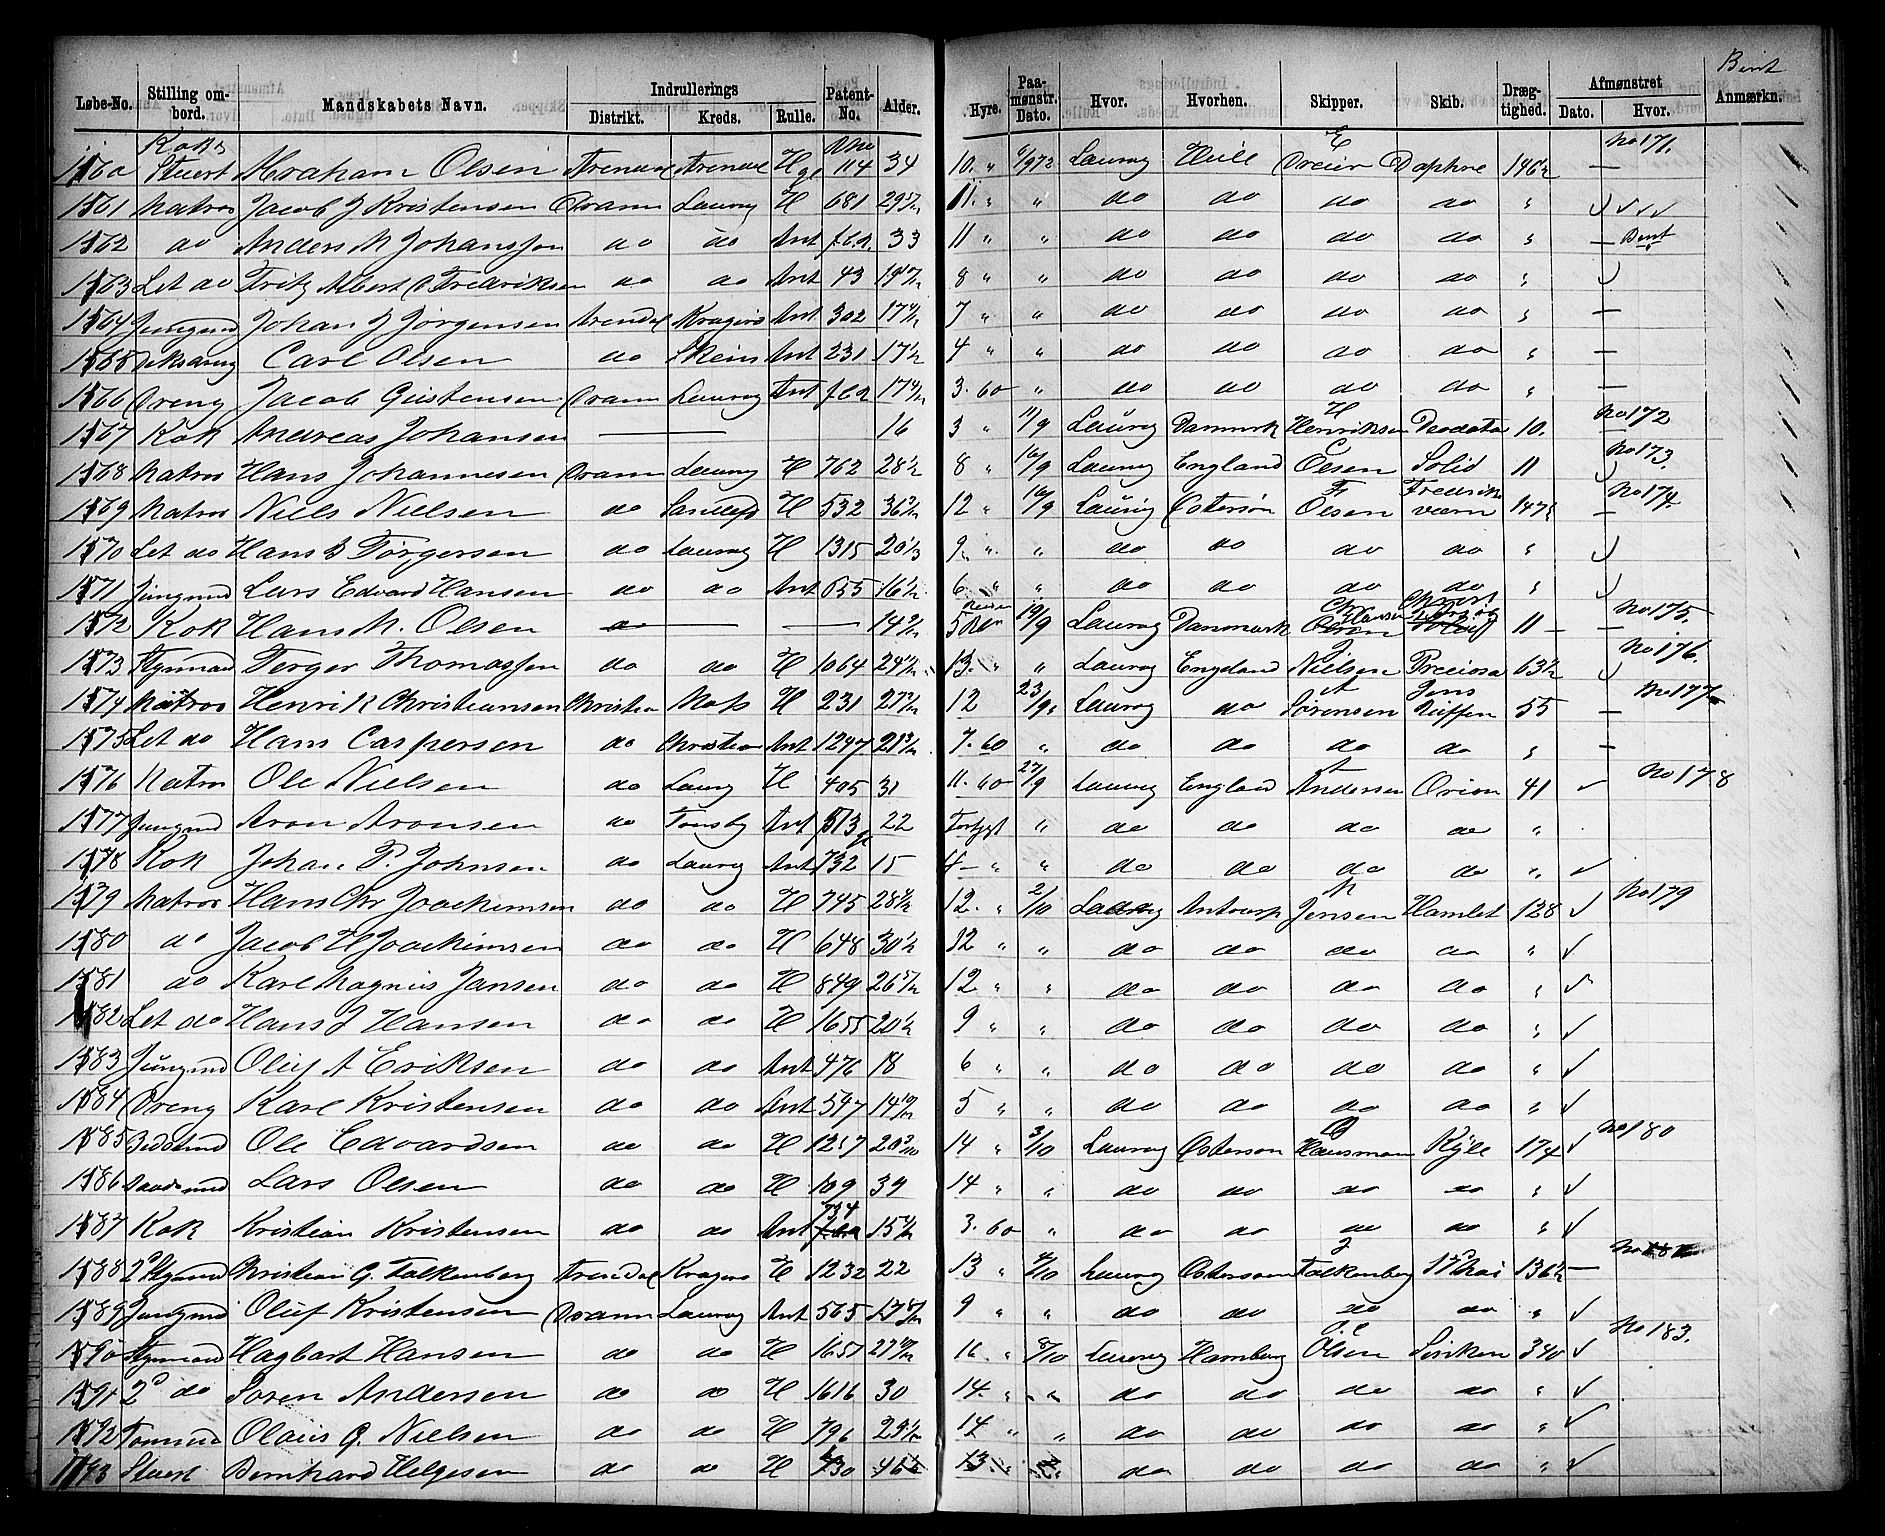 Bent
Løbe-No. Stilling ombord. Mandskabets Navn. Indrullerings Distrikt. Kreds. Rulle. Patent-No. Alder. Hyre. Paamønstr. Dato. Hvor. Hvorhen. Skipper. Skib. Drægtighed. Afmønstret Dato. Hvor. Anmærkn.
Kok & Stuert Abraham Olsen Arendal Arendal H 114 34 10 " Laurvig Hull E Dreier Daphne — No 171.
1561 Matros Jacob J Kristensen Dramm Laurvig H 681 11 " " do do do do "
1562 do Anders M Johanssen do do Ant 33 11 " " do do do do " — Bent
1563 Let do Fritz Albert Fredriksen do do Ant 43 8 " " do do do do "
1564 Jungmd Johan J Jørgensen Arendal Kragerø Ant 302 7 " " do do do do " —
1565 Carl Olsen do Skien Ant 231 17½ 4 " " do do do do " —
1566 Dreng Jacob Gustensen Dramm Laurvig Ant 3.60 " do do do do " —
1567 Kok Andreas Johansen — 16 3 " 11/9 Laurvig Danmark H Henriksen 10. No 172
1568 Matros Hans Johannesen Dramm Laurvig H 762 28½ 8 " 16/9 Laurvig England Olsen Solid 11 No 173.
1569 Matros Niels Nielsen do H 532 12 " 16/9 Laurvig Østersøn F Olsen Fredriksværn — No 174.
1570 Let do Hans B Torgersen do Laurvig H 1315 9 " " do do do do "
1571 Jungmd Lars Edvard Hansen do do Ant 655 16½ 6 " " do do do do "
1572 Kok Hans M. Olsen — 19/9 Laurvig Danmark Chr Hansen 11 — No 175.
1573 Styrmand Terger Thomassen do do H 1064 13 " " Laurvig England J Nielsen Preciosa 63½ No 176.
1574 Matros Henrik Christiansen Christia Moss H 231 12 23/9 Laurvig do A Sørensen Jens 55 — No 177
1575 Let do Hans Caspersen do Christia Ant 1247 7.60 " do do do do " —
1576 Matros Ole Nielsen do Laurvig H 405 31 11.60 27/9 Laurvig England A Andersen Orion 41 No 178
1577 Jungmd Aron Aronsen do Tønsby Ant 513 22 " do do do do "
1578 Kok Johan P. Johnsen do Laurvig Ant 732 15 4 – " do do do do "
1579 Matros Hans Chr Joackimsen do do H 745 28½ 12 " 2/10 Laurvig Antwerp M Jensen Hamlet 128 No 179
1580 do Jacob H Joackimsen do do H 648 30½ 12 " " do do do do "
1581 do Karl Magnus Jansen do do H 849 12 " " do do do do "
1582 Let do Hans J Hansen do do H 1655 20½ 9 " " do do do do "
1583 Jungmd Oluf A Eriksen do do Ant 476 18 6 " " do do do do "
1584 Dreng Karl Kristensen do do Ant 547 5 " " do do do do "
1585 Bedstmd Ole Edvardsen do do H 1257 14 " 3/10 Laurvig Østersøn Hausman 174 No 180
1586 Lars Olsen do do H 109 39 14 " " do do do do "
1587 Kok Kristian Kristensen do do Ant 734 3.60 " do do do do "
1588 2d Styrmd Kristian G. Falkenberg Arendal Kragerø H 1232 22 13 " 4/10 Laurvig Østersøen J Falkenberg 17 Mai 136½ —
1589 Jungmd Oluf Kristensen Dramm Laurvig Ant 565 9 " " do do do do "
1590 Styrmand Hagbart Hansen do do H 1651 16 " 8/10 Laurvig Hamborg Olsen Siriken 340 No 183.
1591 2d do Søren Andersen do do H 1616 30 14 " " do do do do "
1592 Tømmd Olaus G. Nielsen do do H 796 29½ 14 " " do do do do "
1593 Stuert Bernhard Helgesen do do H 13 " do do do do "